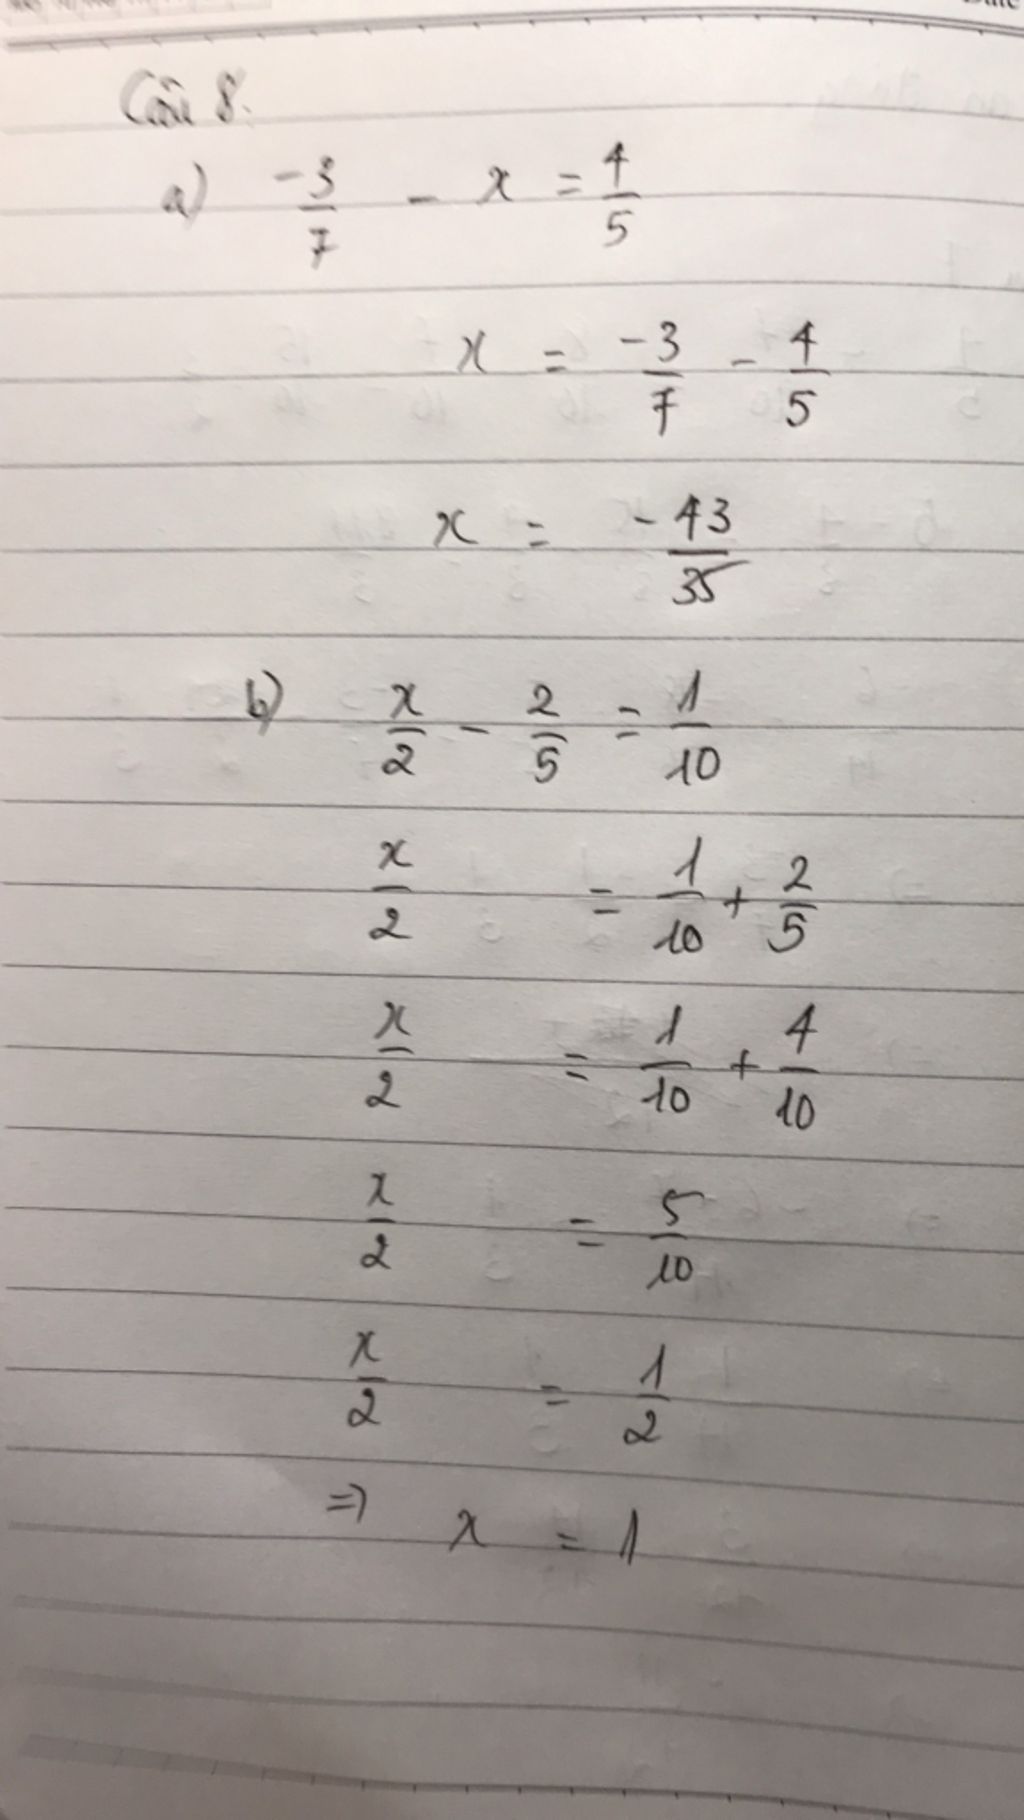 Câu 8.
a) -3/7 - x = 4/5
x = -3/7 - 4/5
x = -43/35
b) x/2 - 2/5 = 1/10
x/2 = 1/10 + 2/5
x/2 = 1/10 + 4/10
x/2 = 5/10
x/2 = 1/2
=> x = 1